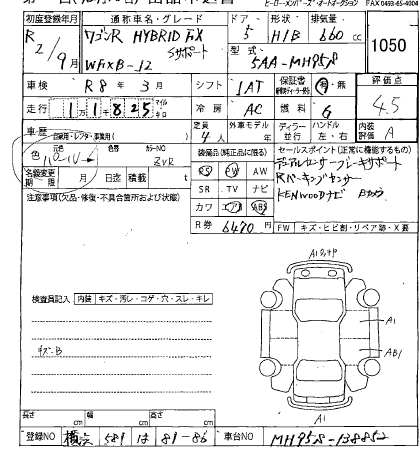 ヒーロー・メンバーズ・オートオークション FAX 0493-65-4004
初度登録年月 通称車名・グレード ドア 形状 排気量
R 2/9月 ワゴンR HYBRID FX Sサポート 5 H/B 660 cc 1050
WFXB-J2 型式 5AA-MH95S
車検 R8年3月 シフト IAT 保証書 有・無 評価点
走行 11825 マイル キロ 冷房 AC 燃料 G 4.5
車歴 自家用・レンタ・事業用( ) 定員 4人 外車モデル ディーラー 並行 ハンドル 左・右 内装評価 A
色 元色 色替 カラーNO ZVR
名義変更期限 月 日迄 積載 t
装備品(純正品に限る) セールスポイント(正常に機能するもの)
PS PW AW デュアルセンサーブレーキサポート
SR TV ナビ Rパーキングセンサー
カワ エアB ABS KENWOODナビ Bカメラ
R券 6470円
注意事項(欠品・修復・不具合箇所および状態)
FW キズ・ヒビ割・リペア跡・X要
検査員記入 内装 キズ・汚レ・コゲ・穴・スレ・キレ
キズ・B
A1
AB1
A1
長さ cm 幅 cm 高さ cm
登録NO 横浜 581 は 81-86 車台NO MH95S-138852